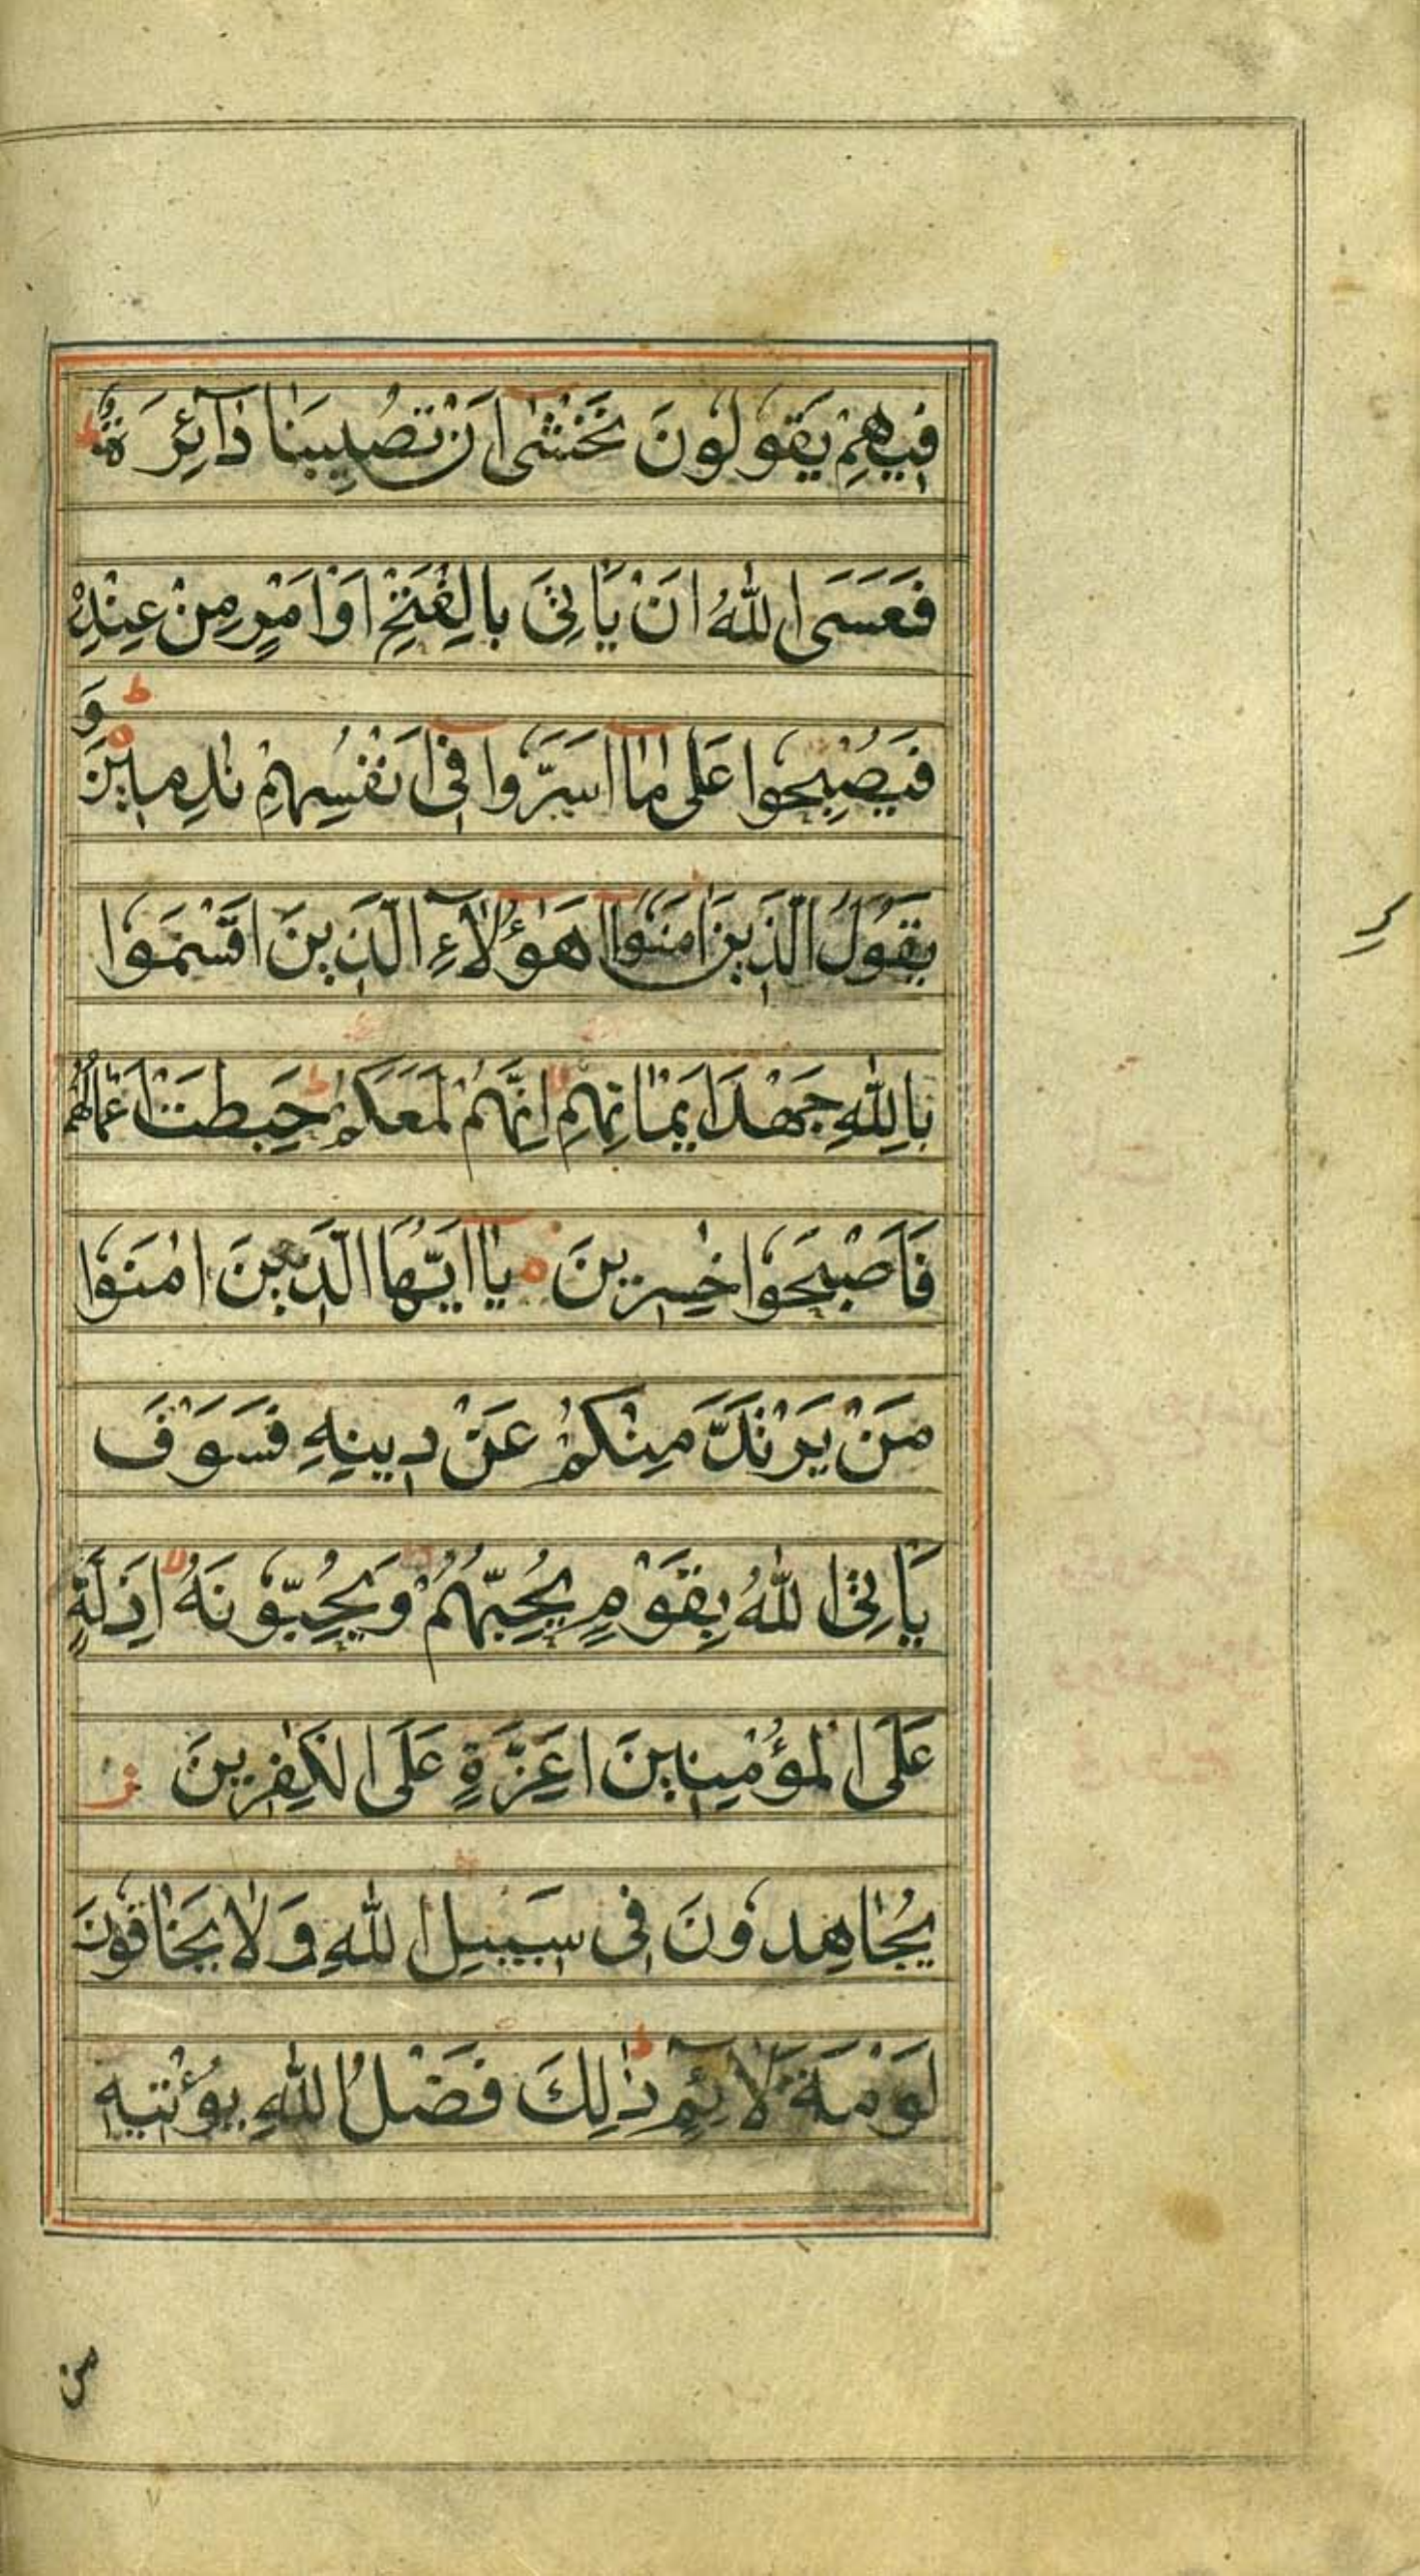 فِيهِمْ يَقُولُونَ نَخْشٰٓى اَنْ تُصِيبَنَا دَآئِرَةٌ ط
فَعَسَى اللّٰهُ اَنْ يَاْتِىَ بِالْفَتْحِ اَوْ اَمْرٍ مِنْ عِنْدِهٖ
ط
فَيُصْبِحُوا عَلٰى مَآ اَسَرُّوا فِىٓ اَنْفُسِهِمْ نٰدِمِينَ وَ
يَقُولُ الَّذِينَ اٰمَنُوٓا اَهٰٓؤُلَآءِ الَّذِينَ اَقْسَمُوا
بِاللّٰهِ جَهْدَ اَيْمَانِهِمْ لا اِنَّهُمْ لَمَعَكُمْ ط حَبِطَتْ اَعْمَالُهُمْ
فَاَصْبَحُوا خٰسِرِينَ يَآ اَيُّهَا الَّذِينَ اٰمَنُوا
مَنْ يَرْتَدَّ مِنْكُمْ عَنْ دِينِهِ فَسَوْفَ
يَاْتِى اللّٰهُ بِقَوْمٍ يُحِبُّهُمْ وَيُحِبُّونَهُ لا اَذِلَّةٍ
عَلَى الْمُؤْمِنِينَ اَعِزَّةٍ عَلَى الْكٰفِرِينَ ز
يُجَاهِدُونَ فِى سَبِيلِ اللّٰهِ وَلَا يَخَافُونَ
لَوْمَةَ لَآئِمٍ ط ذٰلِكَ فَضْلُ اللّٰهِ يُؤْتِيهِ
من